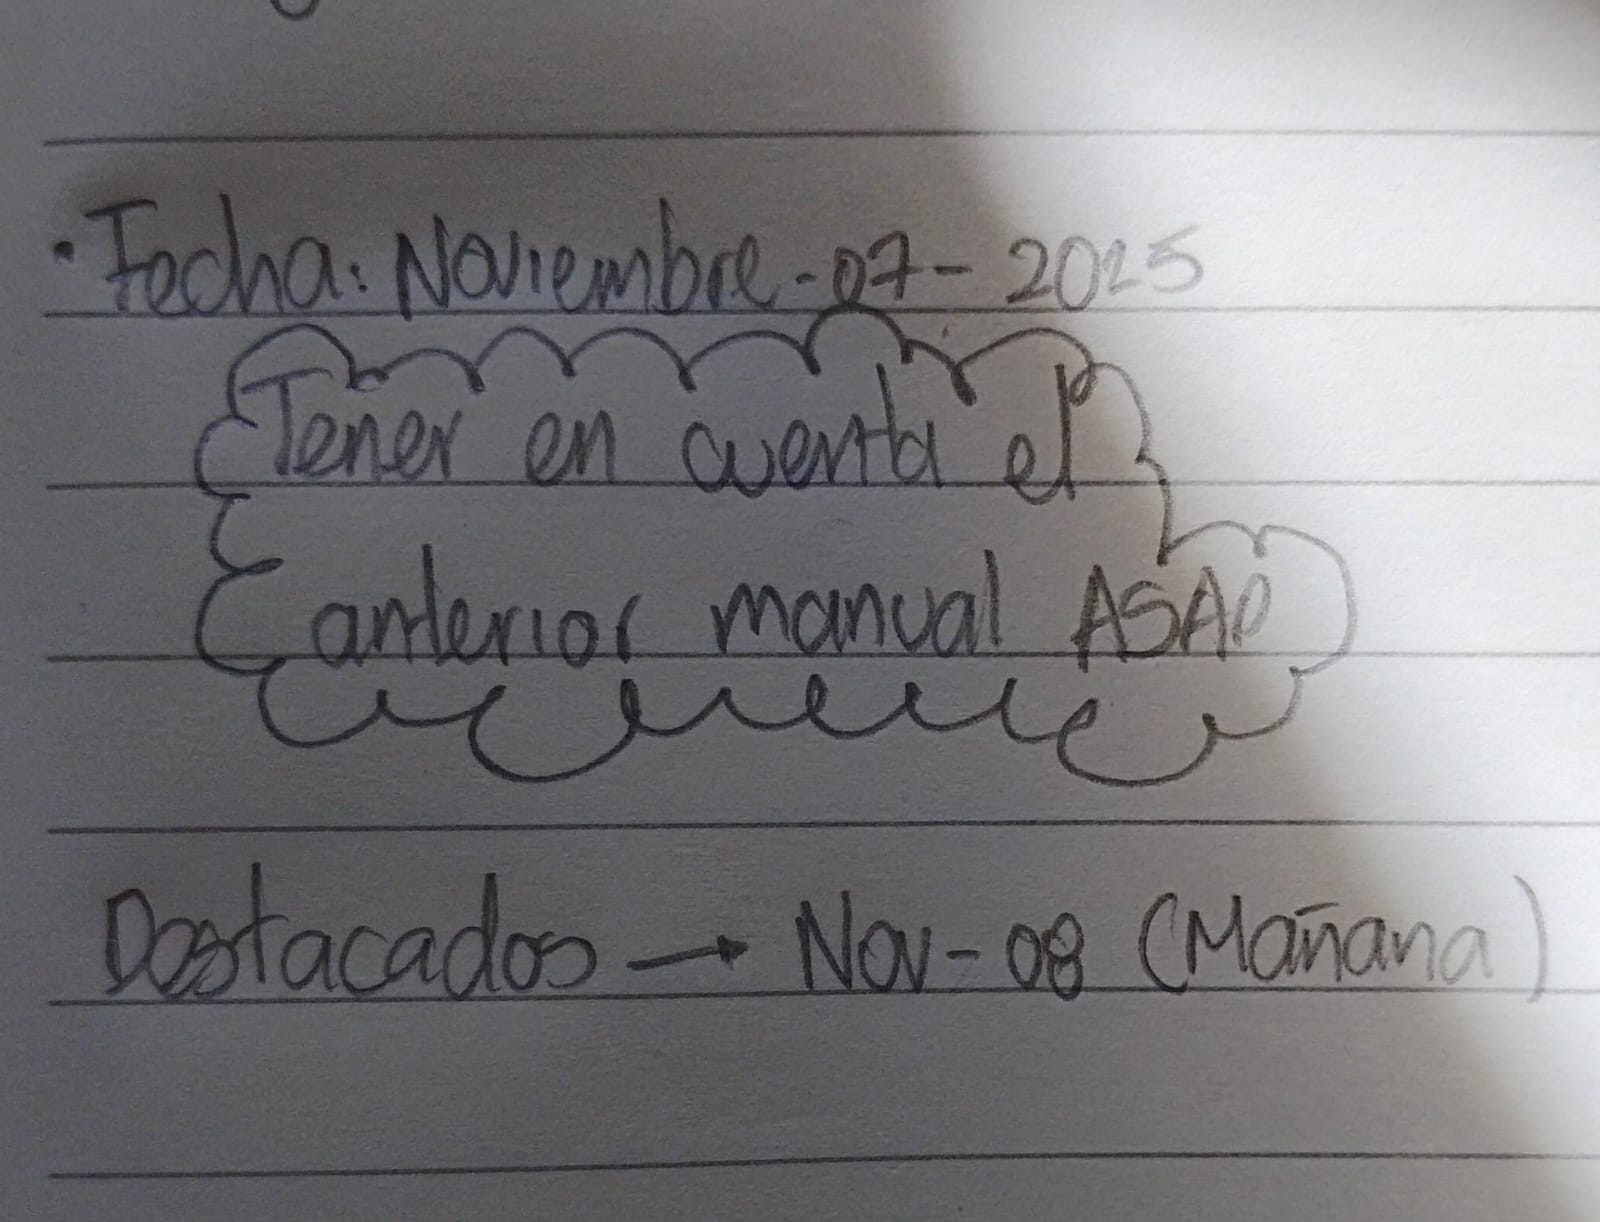 • Fecha: Noviembre - 07 - 2025
Tener en cuenta el
anterior manual ASAP
Destacados → Nov - 08 (Mañana)